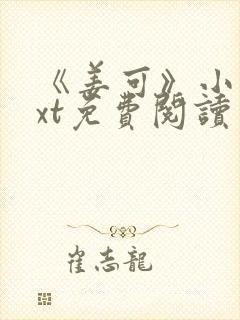 《姜可》小
xt免費閱讀
崔志龍